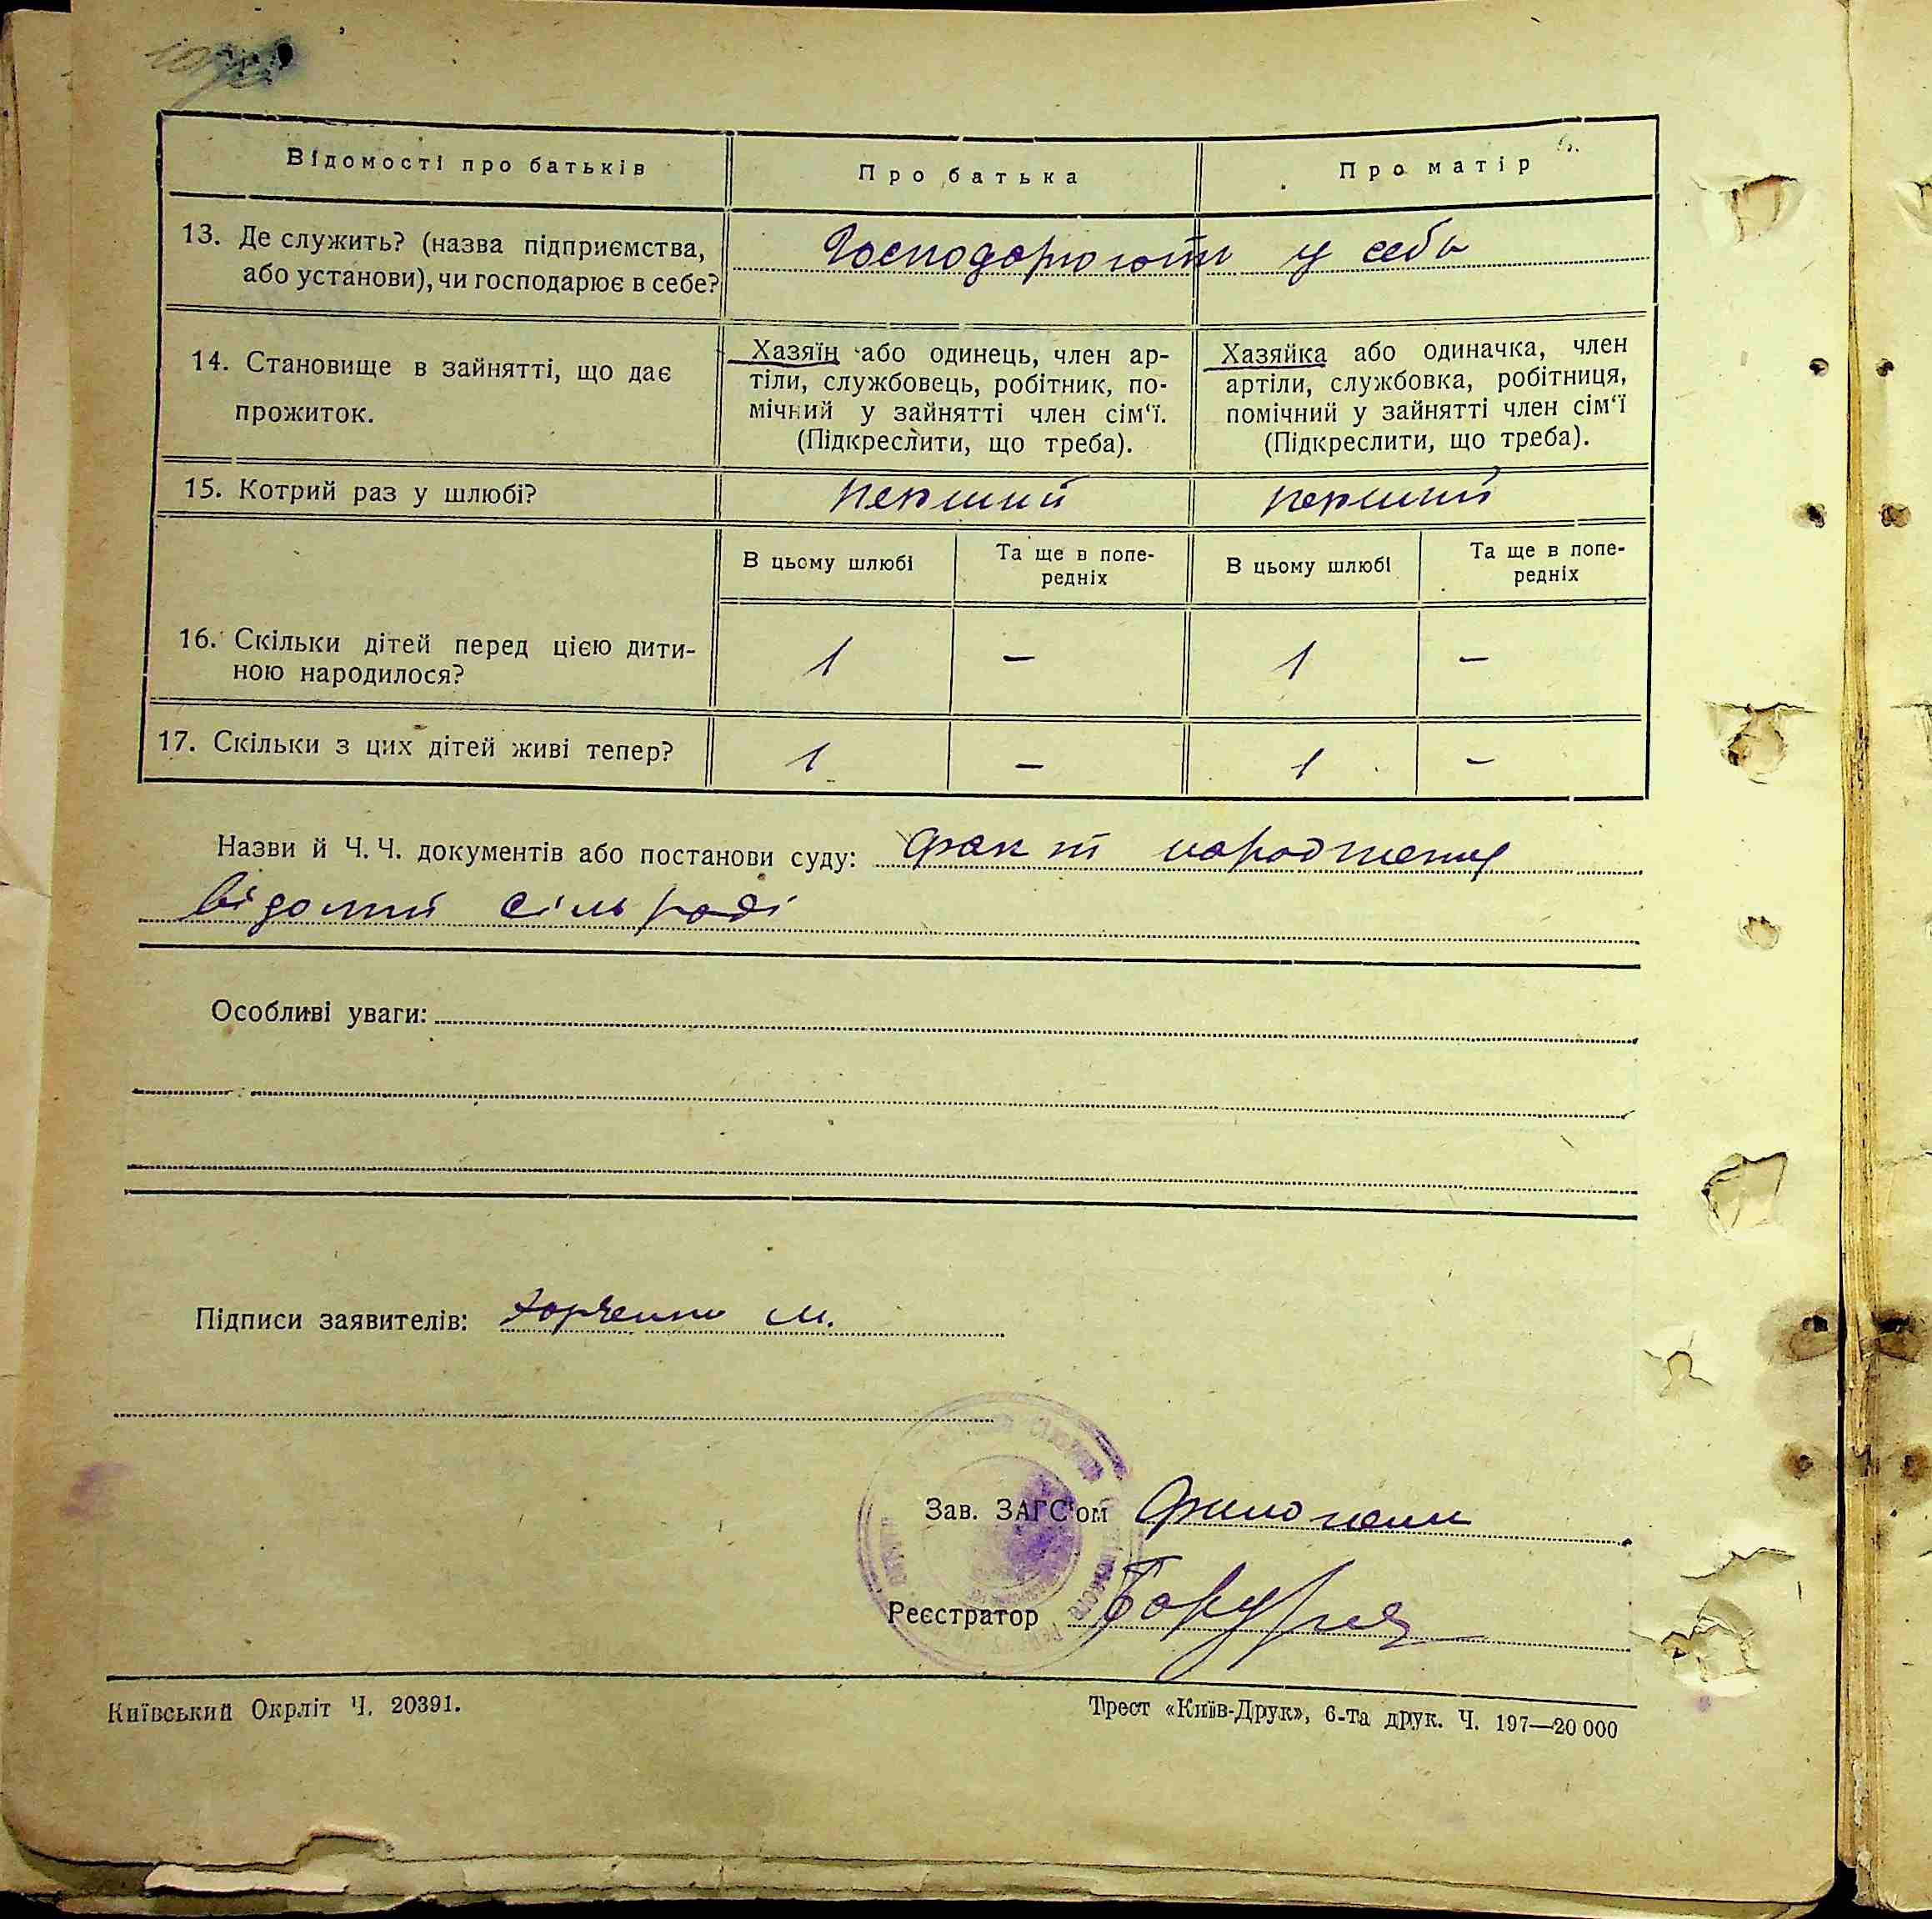 Відомості про батьків
Про батька
Про матір
13. Де служить? (назва підприємства,
або установи), чи господарює в себе?
Господарюють у себе
14. Становище в зайнятті, що дає
прожиток.
Хазяїн або одинець, член ар-
тіли, службовець, робітник, по-
мічний у зайнятті член сім‘ї.
(Підкреслити, що треба).
Хазяйка або одиначка, член
артіли, службовка, робітниця,
помічний у зайнятті член сім‘ї
(Підкреслити, що треба).
15. Котрий раз у шлюбі?
перший
перший
В цьому шлюбі
Та ще в попе-
редніх
В цьому шлюбі
Та ще в попе-
редніх
16. Скільки дітей перед цією дити-
ною народилося?
1 – 1 –
17. Скільки з цих дітей живі тепер?
1 – 1 –
Назви й Ч. Ч. документів або постанови суду: факт народження
відомий сільраді
Особливі уваги:
Підписи заявителів: М.
Зав. ЗАГС‘ом
Реєстратор
Київський Окрліт Ч. 20391.
Трест «Київ-Друк», 6-та друк. Ч. 197—20 000